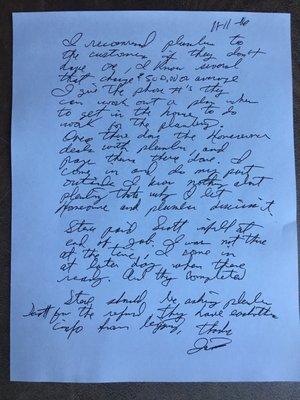 I recommend plumber to
the customers if they don't
have one, I know several
that charge $500.00 average
I give the phone #'s they
can work out a plan when
to get in the house to do
work for the plumbing
Once there done the Homeowner
deals with plumber, and
pays them there done. I
come in and do my part
outside I know nothing about
plumbing thats why I let
Homeowner and plumber discuss it.
Stacy paid Scott in full at
end of Job, I was not there
at the time, I come in
at later day when there
ready. And they completed
Stacy should be asking plumber
Scott for the refund, They have eachothers
info from begining, thanks